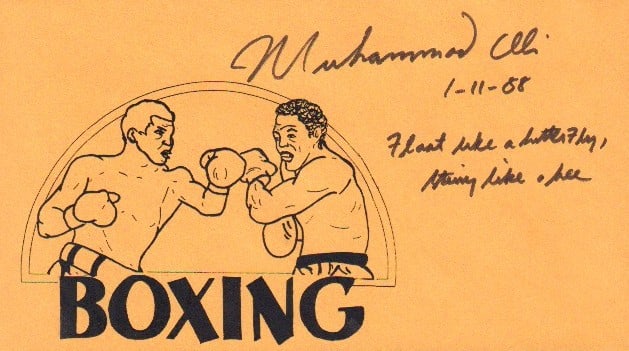 Muhammad Ali
1-11-88
Float like a butterfly,
sting like a bee
BOXING